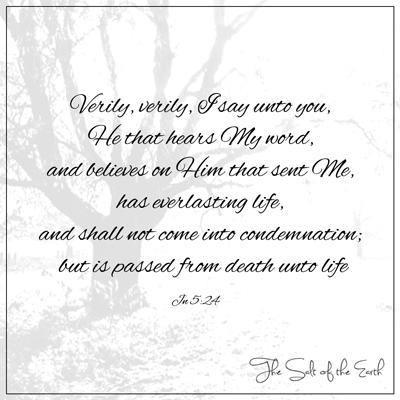 Verily, verily, I say unto you,
He that hears My word,
and believes on Him that sent Me,
has everlasting life,
and shall not come into condemnation;
but is passed from death unto life
Jn 5:24
The Salt of the Earth